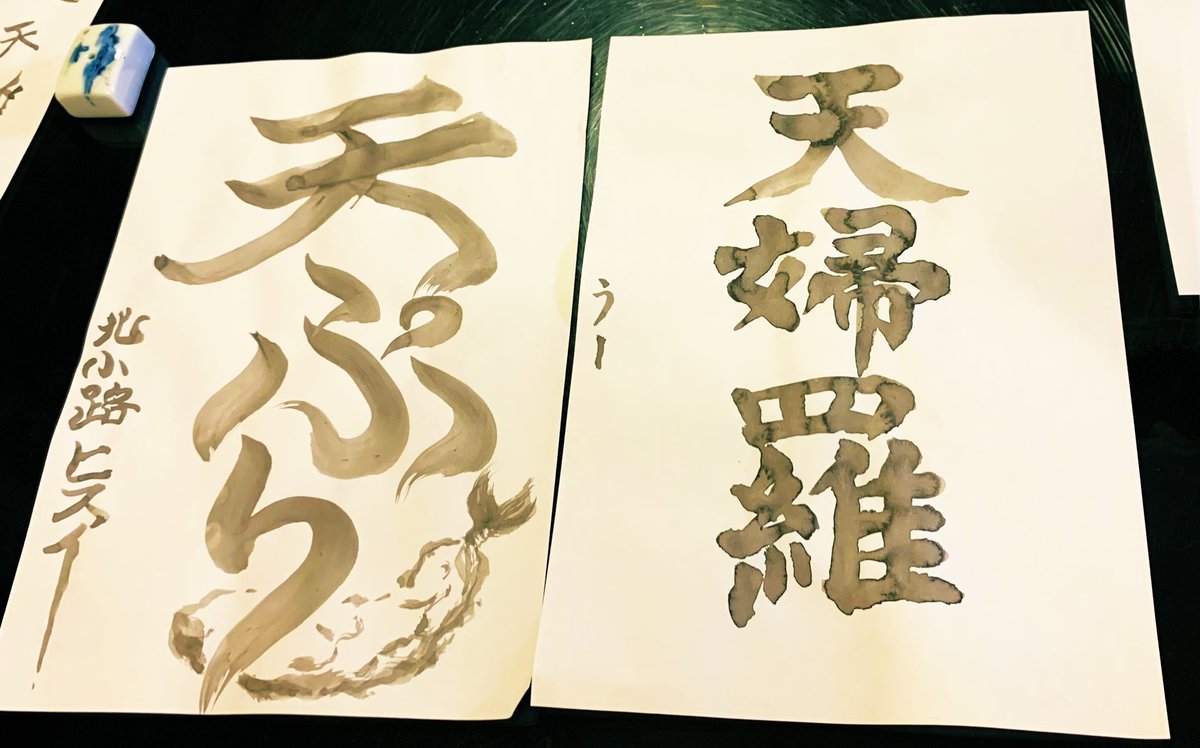 天婦羅
うー
天ぷら
北小路ヒスイ
天